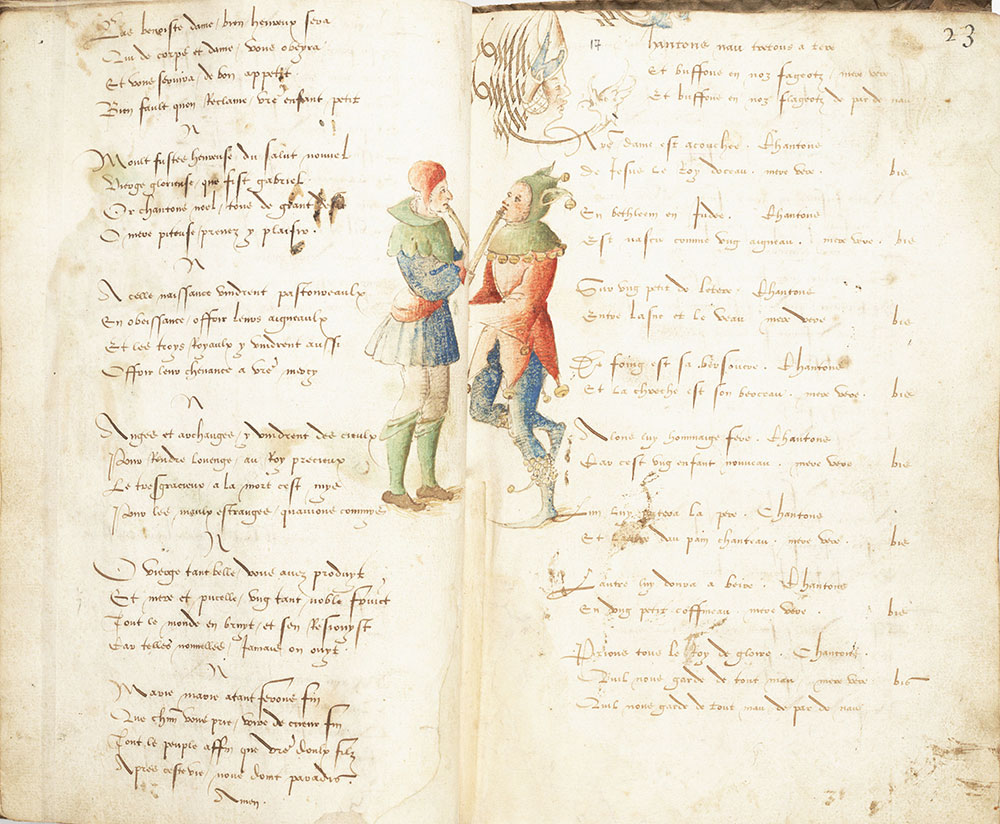 Las benoiste dame / bien heureux sera
Qui de corps et dame / vous obeyra
Et vous servira / de bon appetit
Bien fault quon Reclame / vre enfant petit
N
Moult fustes heureuse / du salut nouvel
Vierge glorieuse / que fist gabriel
Or chantons noel / tous de grant
O mere piteuse / prenez y plaisir.
N
A celle naissance vindrent pastoureaulx
En obeissance / offrir leurs aigneaulx
Et les troys Royaulx y vindrent aussi
Offrir leur chevance a vre mercy
N
Anges et archanges / y vindrent des cieulx
Pour Rendre louenge / au Roy precieux
Le tresgracieux a la mort cest mys
Pour les maulx estranges / quavions commys
N
O vierge tant belle / vous avez produyt
Et mere et pucelle / ung tant noble fruict
Tout le monde en bruyt / et sen Resjouyst
Car telles nouvelles / Jamais on ouyt.
N
Marie marie atant ferons fin
Que chm vous prie / vivre de cueur fin
Tout le peuple affin que vre doulx filz
Apres ceste vie / nous doint paradis.
Amen.
17
23
Chantons nau tretous a tere
Et buffons en noz fageotz / mere vere
Et buffons en noz flageotz de par de nau
Nre dame est acouchee. Chantons
de Jesus le Roy doceau. mere vere. bis
En bethleem en Judee. Chantons
Est nascu comme ung aigneau. mere vere. bis
Sur ung petit de letere. Chantons
Entre lasne et le veau mere vere bis
De foing est sa Chantons
Et la creche est son berceau. mere vere. bis
Alons luy hommaige fere. Chantons
Car cest ung enfant nouveau. mere vere bis
Lun luy la pere. Chantons
Et du pain chanteau. mere vere. bis
Lautre luy donra a beire. Chantons
En ung petit coffineau. mere vere. bis
Prions tous le Roy de gloire. Chantons.
Quil nous garde de tout mau mere vere bis
Quil nous garde de tout mau de par de nau